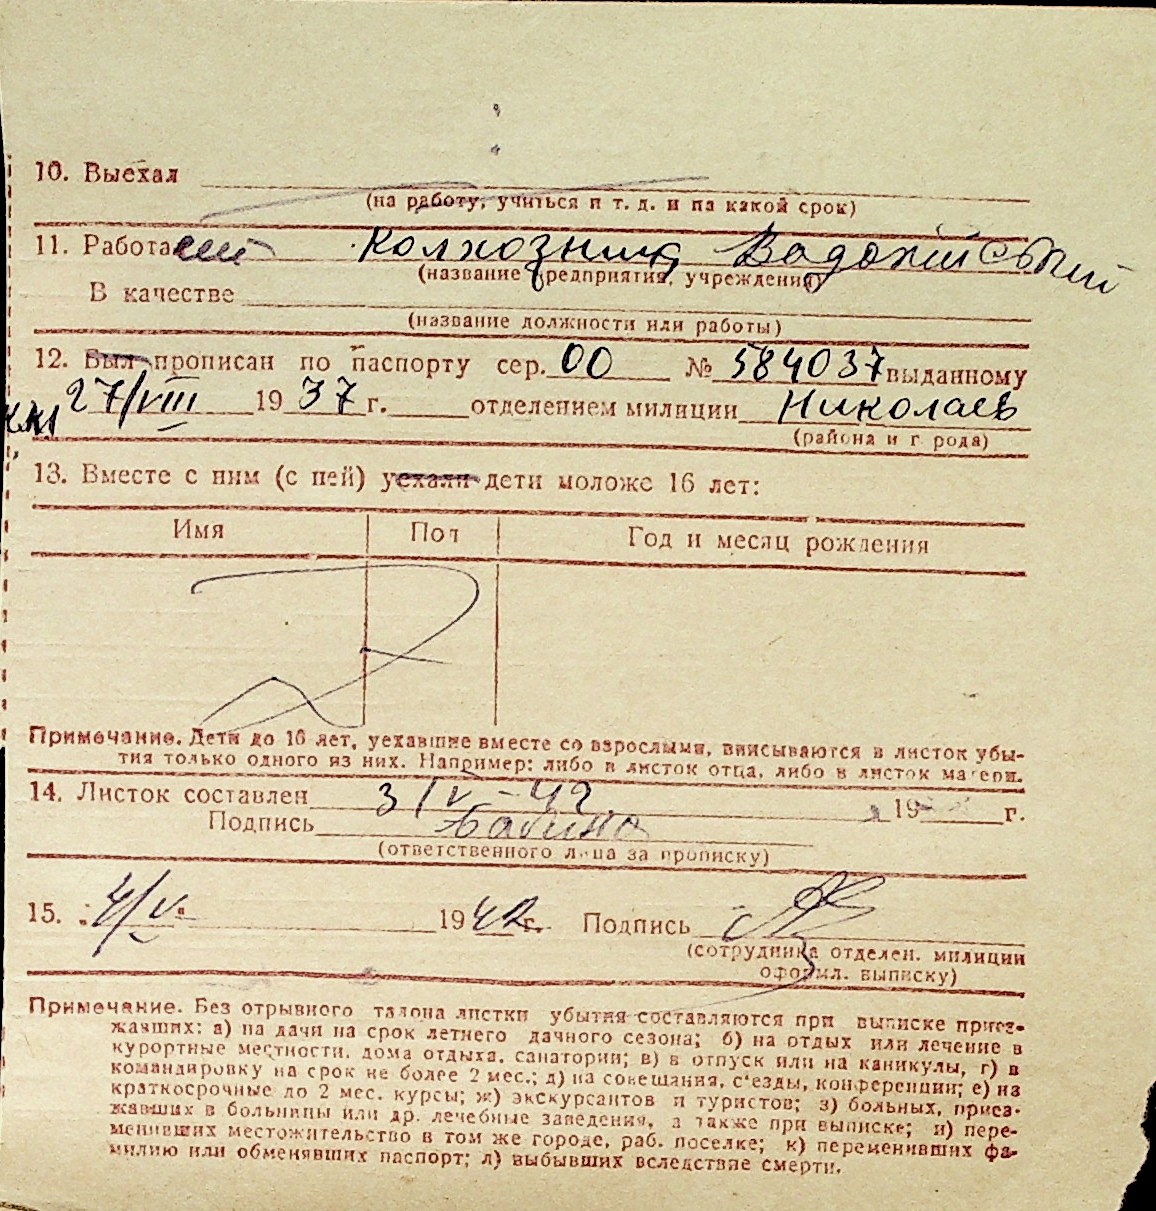 10. Выехал
(на работу, учиться и т. д. и на какой срок)
11. Работает колхозник
(название предприятия, учреждения)
В качестве
(название должности или работы)
12. Был прописан по паспорту сер. 00 № 584037 выданному
27/VIII 1937 г. отделением милиции Николаев
(района и города)
13. Вместе с ним (с ней) уехали дети моложе 16 лет:
Имя Пол Год и месяц рождения
Примечание. Дети до 16 лет, уехавшие вместе со взрослыми, вписываются в листок убы-
тия только одного из них. Например: либо в листок отца, либо в листок матери.
14. Листок составлен 3/V-42 19 г.
Подпись
(ответственного лица за прописку)
15. 4/V 1942 г. Подпись
(сотрудника отделен. милиции
оформл. выписку)
Примечание. Без отрывного талона листки убытия составляются при выписке приез-
жавших: а) на дачи на срок летнего дачного сезона; б) на отдых или лечение в
курортные местности, дома отдыха, санатории; в) в отпуск или на каникулы, г) в
командировку на срок не более 2 мес.; д) на совещания, с'езды, конференции; е) из
краткосрочные до 2 мес. курсы; ж) экскурсантов и туристов; з) больных, приез-
жавших в больницы или др. лечебные заведения, а также при выписке; и) пере-
менивших местожительство в том же городе, раб. поселке; к) переменивших фа-
милию или обменявших паспорт; л) выбывших вследствие смерти.